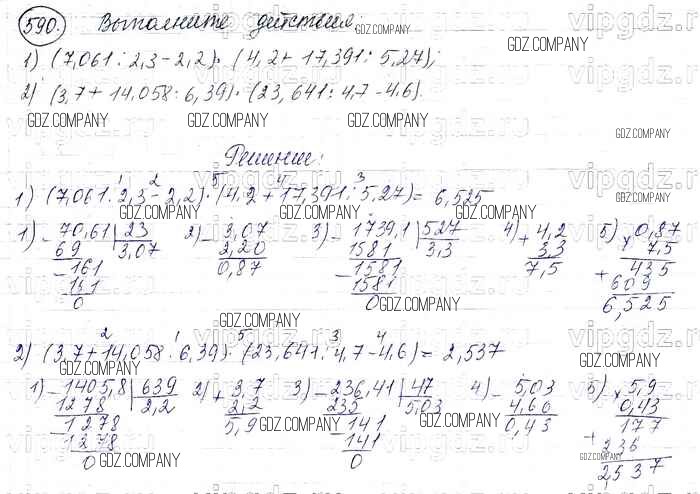 590. Выполните действия:
1) (7,061 : 2,3 - 2,2) · (4,2 + 17,391 : 5,27);
2) (3,7 + 14,058 : 6,39) · (23,641 : 4,7 - 4,6).
Решение:
1 2 5 4 3
1) (7,061 : 2,3 - 2,2) · (4,2 + 17,391 : 5,27) = 6,525
1) - 70,61 | 23 2) - 3,07 3) - 1739,1 | 527 4) + 4,2 5) × 0,87
69 3,07 2,20 1581 3,3 3,3 7,5
- 161 0,87 - 1581 7,5 + 435
161 1581 609
0 0 6,525
2 1 5 3 4
2) (3,7 + 14,058 : 6,39) · (23,641 : 4,7 - 4,6) = 2,537
1) - 1405,8 | 639 2) + 3,7 3) - 236,41 | 47 4) - 5,03 5) × 5,9
1278 2,2 2,2 235 5,03 4,60 0,43
- 1278 5,9 - 141 0,43 177
1278 141 + 236
0 0 2537
GDZ.COMPANY
vipgdz.ru